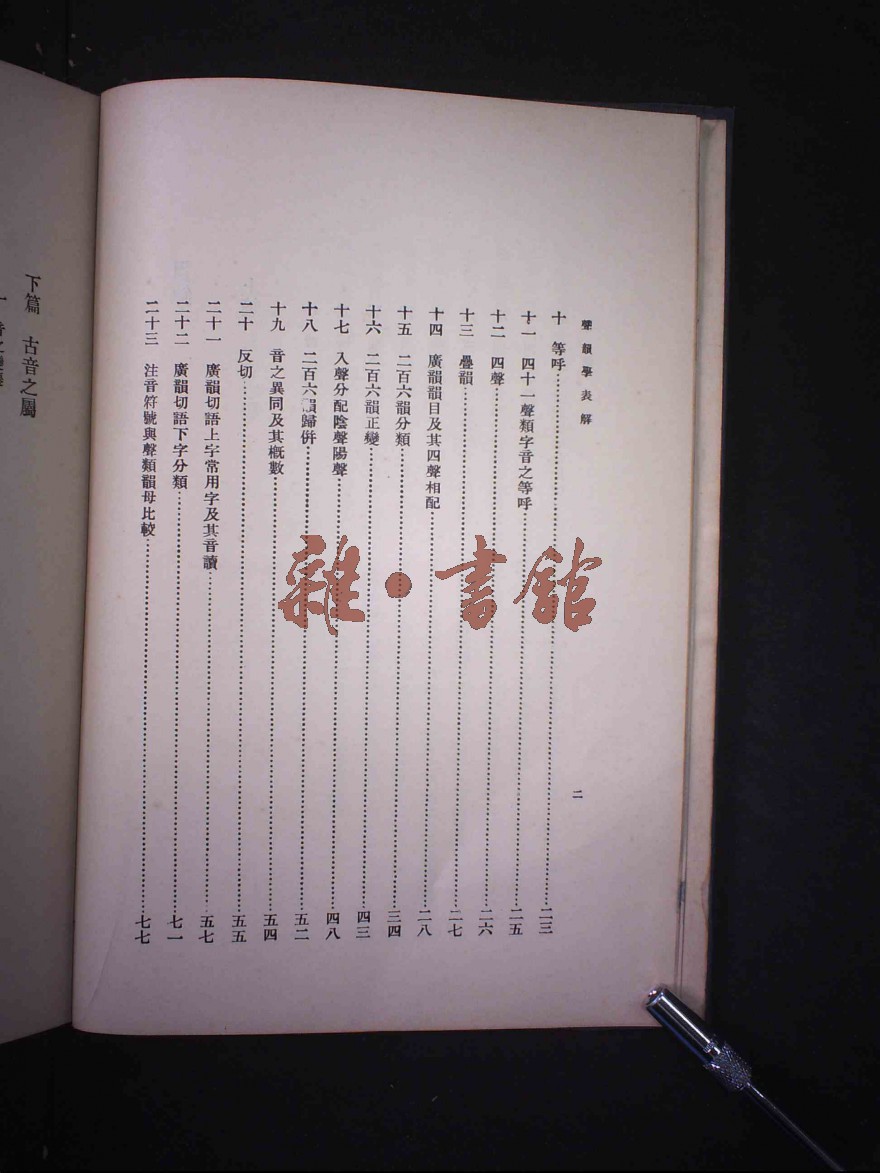 聲韻學表解
二
十 等呼 二三
十一 四十一聲類字音之等呼 二五
十二 四聲 二六
十三 疊韻 二七
十四 廣韻韻目及其四聲相配 二八
十五 二百六韻分類 三四
十六 二百六韻正變 四三
十七 入聲分配陰聲陽聲 四八
十八 二百六韻歸併 五二
十九 音之異同及其概數 五四
二十 反切 五五
二十一 廣韻切語上字常用字及其音讀 五七
二十二 廣韻切語下字分類 七一
二十三 注音符號與聲類韻母比較 七七
下篇 古音之屬
雜·書館